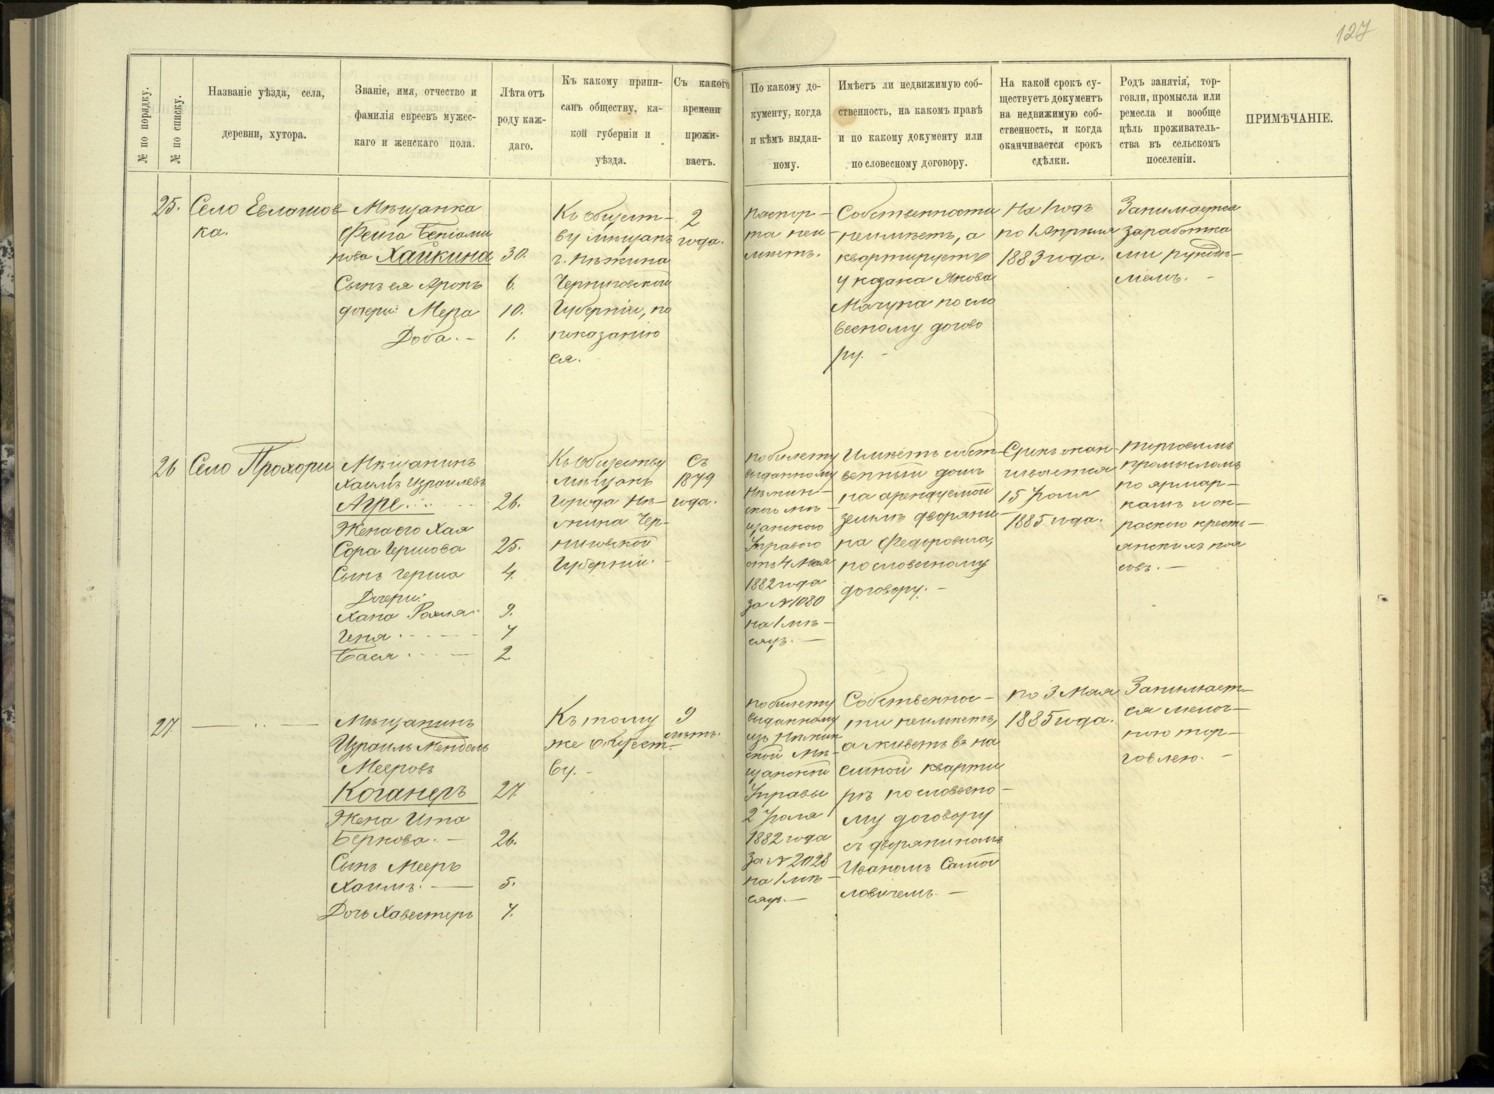 127
№ по порядку.
№ по списку.
Названіе уѣзда, села,
деревни, хутора.
Званіе, имя, отчество и
фамилія евреевъ мужес-
каго и женскаго пола.
Лѣта отъ
роду каж-
даго.
Къ какому припи-
санъ обществу, ка-
кой губерніи и
уѣзда.
Съ какого
времени
прожи-
ваетъ.
По какому до-
кументу, когда
и кѣмъ выдан-
ному.
Имѣетъ ли недвижимую соб-
ственность, на какомъ правѣ
и по какому документу или
по словесному договору.
На какой срокъ су-
ществуетъ документъ
на недвижимую соб-
ственность, и когда
оканчивается срокъ
сдѣлки.
Родъ занятія, тор-
говли, промысла или
ремесла и вообще
цѣль проживатель-
ства въ сельскомъ
поселеніи.
ПРИМѢЧАНІЕ.
25.
Село Евлашов-
ка.
Мѣщанка
Фейга Беніами
нова Хайкина
Сынъ ея Аронъ
дочери: Мера
Доба. –
30.
6.
10.
1.
Къ общест-
ву мѣщанъ
г. Нѣжина
Черниговской
Губерніи, по
показанію
ея.
2
года.
паспор-
та неи-
мѣетъ.
Собственности
неимѣетъ, а
квартируетъ
у козака Якова
по сло
весному догово
ру. –
на 1 годъ
по 1 Апрѣля
1883 года.
Занимается
заработка
ми
26
Село Прохоры
Мѣщанинъ
Хаимъ Израилевъ
Агре
Жена его Хая
Сора Гершова
Сынъ Герша
Дочери:
Хана Рохля
Геня
Бася
26.
25.
4.
9.
7
2
Къ обществу
мѣщанъ
города Нѣ-
жина Чер-
ниговской
Губерніи. –
Съ
1879
года.
по билету
выданному
Нѣжин-
ской мѣ-
щанскою
Управою
отъ 4 Мая
1882 года
за № 1080
на 1 мѣ-
сяцъ. –
Имѣетъ собст
венный домъ
на арендуемой
землѣ дворяни-
на Федоровича,
по словесному
договору. –
Срокъ окан-
чивается
15 Іюля
1885 года.
торговымъ
промысломъ
по ярмар-
камъ и ок-
раскою кресть-
янскихъ поя
совъ. –
27.
Мѣщанинъ
Израиль Мендель
Мееровъ
Коганеръ
Жена Ита
Беркова. –
Сынъ Мееръ
Хаимъ. –
Дочь Хавестеръ
27.
26.
5.
7.
Къ тому
же общест-
ву. –
9
лѣтъ.
по билету
выданному
изъ Нѣжин
ской Мѣ-
щанской
Управы
2 Іюля
1882 года
за № 2028
на 1 мѣ-
сяцъ. –
Собственнос-
ти неимѣетъ,
а живетъ въ на
емной кварти
рѣ по словесно-
му договору
съ дворяниномъ
Иваномъ Самой
ловичемъ –
по 3 Мая
1885 года.
Занимает-
ся мелоч-
ною тор-
говлею. –